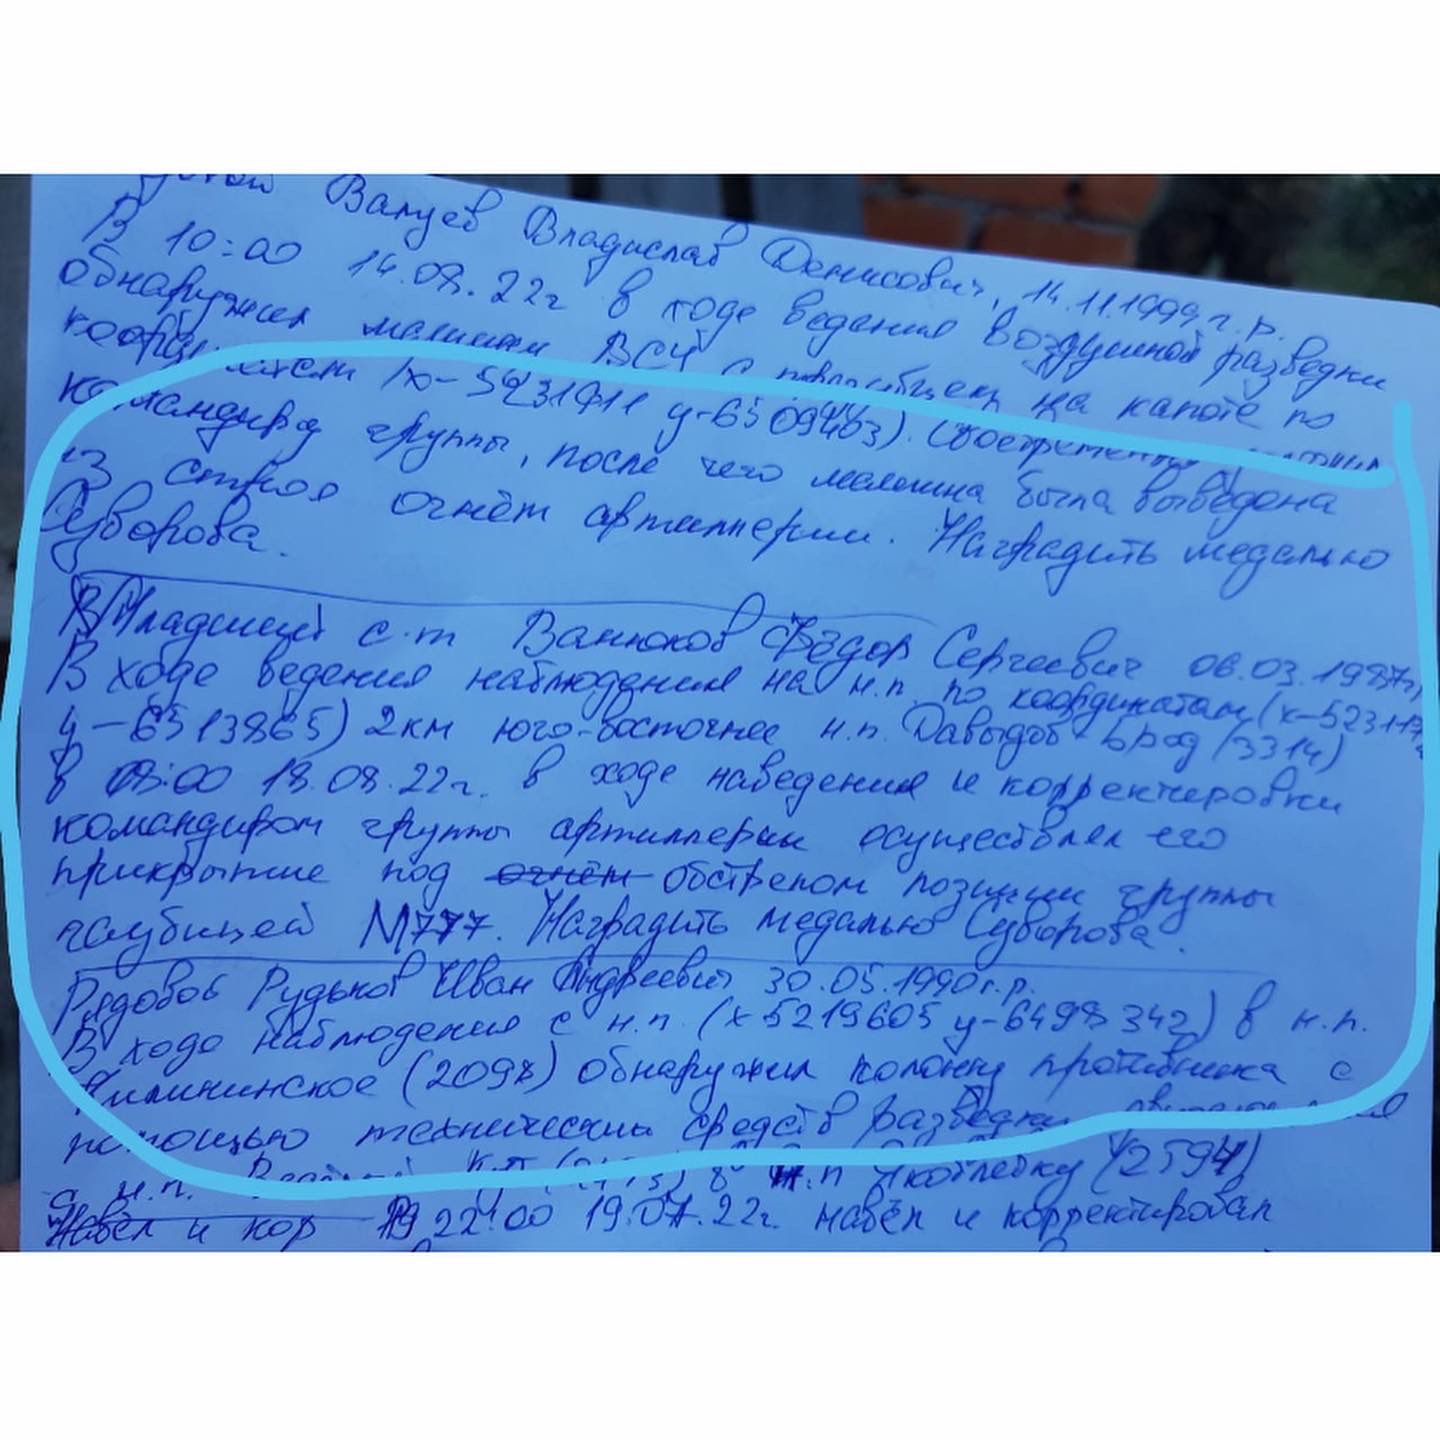 Валуев Владислав Денисович, 14.11.1999 г.р.
В 10:00 14.08.22г в ходе ведения воздушной разведки
обнаружил машину ВСУ с на капоте по
(x-5231011 y-6509403). Своевременно
командира группы, после чего машина была выведена
из строя огнём артиллерии. Наградить медалью
Суворова.
Младший с-т Ванюков Фёдор Сергеевич 06.03.1987г
В ходе ведения наблюдения на н.п. по координатам (x-523117
y-6513865) 2км юго-восточнее н.п. Давыдов Брод (3314)
в 08:00 18.08.22г. в ходе наведения и корректировки
командиром группы артиллерии осуществлял его
прикрытие под огнём обстрелом позиции группы
гаубицей М777. Наградить медалью Суворова.
Рядовой Рудьков Иван Андреевич 30.05.1990г.р.
В ходе наблюдения с н.п. (x5219605 y-6498342) в н.п.
Калининское (2098) обнаружил колонну противника с
помощью технических средств разведки
с н.п. в н.п (2594)
Навёл и кор 22:00 19.07.22г. навёл и корректировал